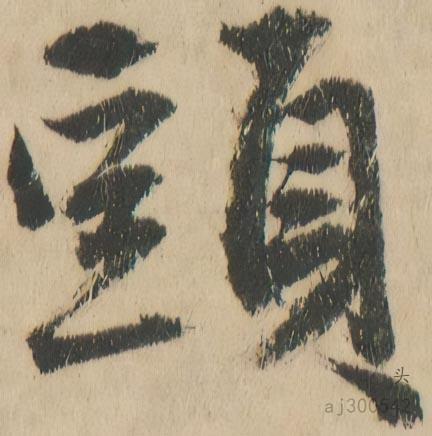 頭
头
aj300542